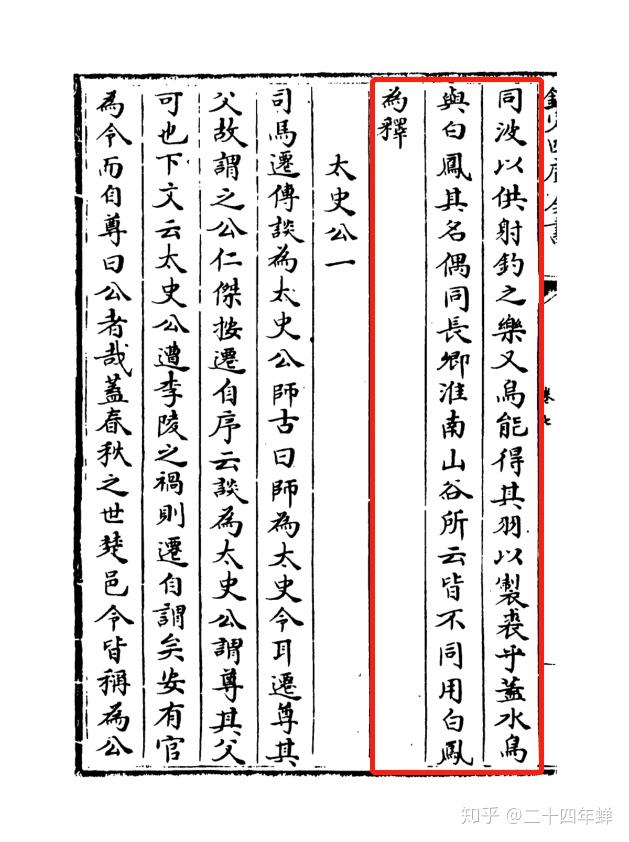 欽定四庫全書
卷七
同波以供射釣之樂又烏能得其羽以製裘乎蓋水鳥
與白鳳其名偶同長卿淮南山谷所云皆不同用白鳳
為釋
太史公一
司馬遷傳談為太史公師古曰師為太史令耳遷尊其
父故謂之公仁傑按遷自序云談為太史公謂尊其父
可也下文云太史公遭李陵之禍則遷自謂矣安有官
為令而自尊曰公者哉蓋春秋之世楚邑令皆稱為公
知乎 @二十四年蝉